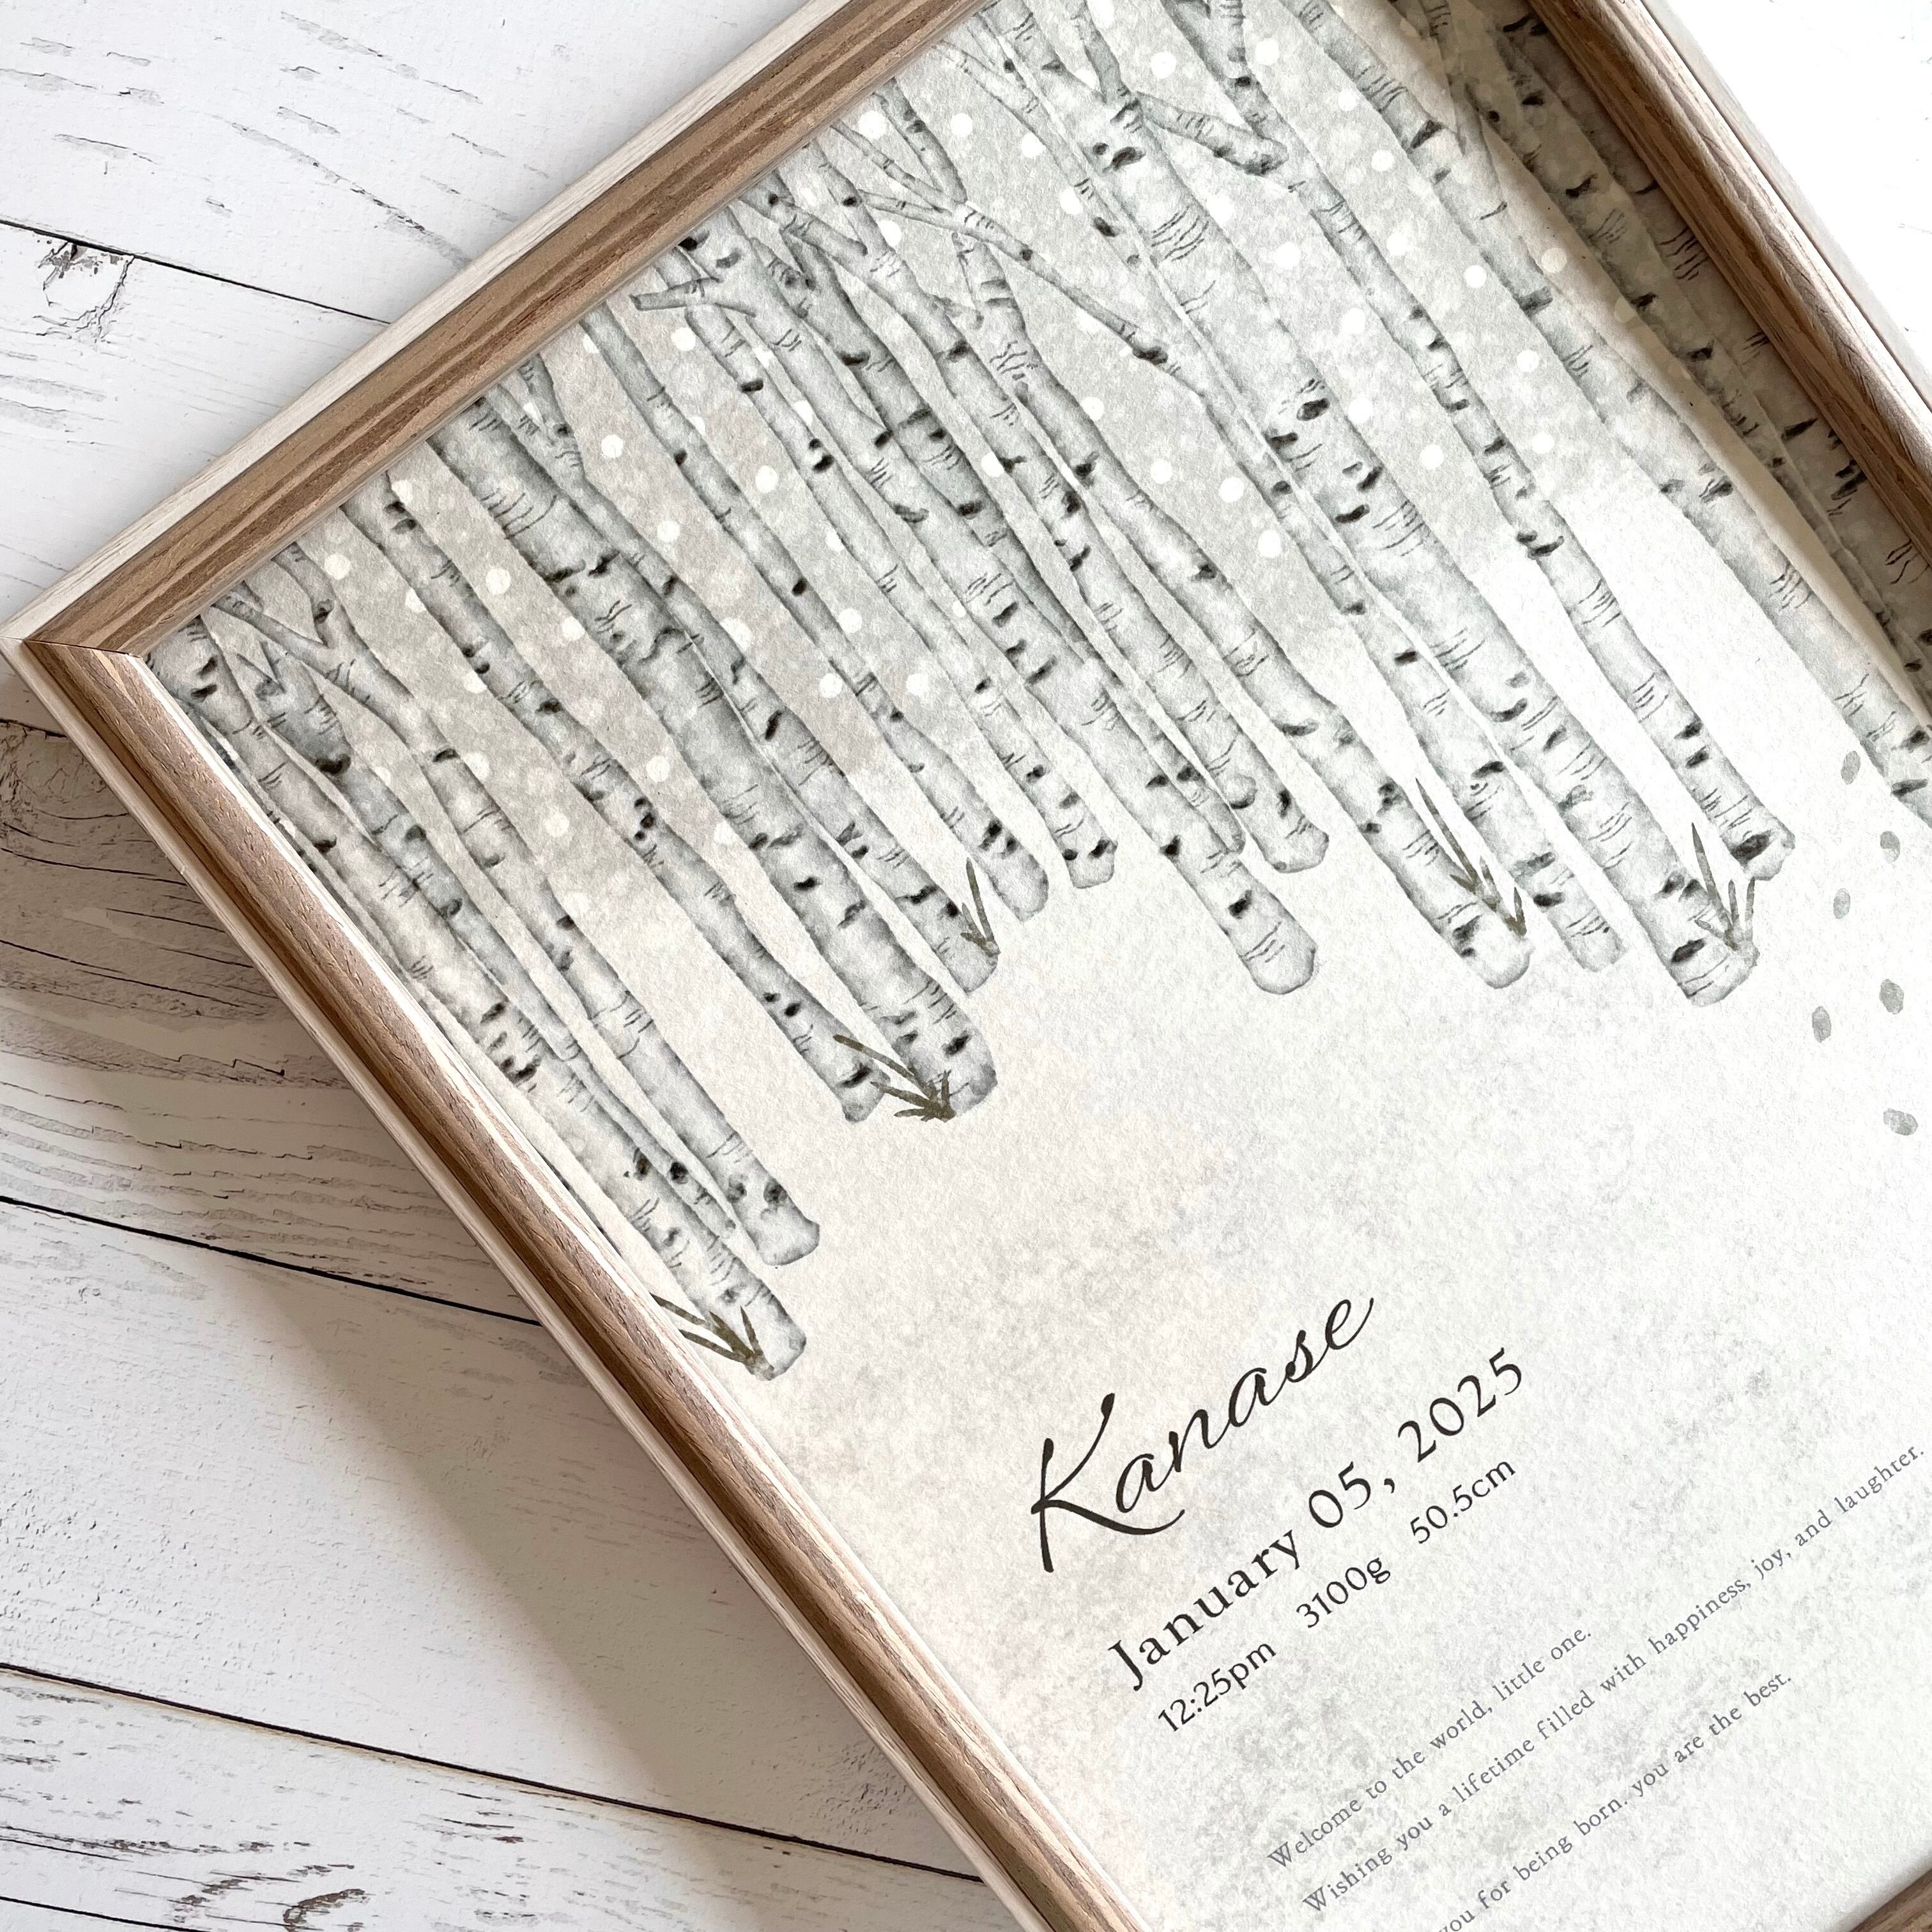 Kanase
January 05, 2025
12:25pm 3100g 50.5cm
Welcome to the world, little one.
Wishing you a lifetime filled with happiness, joy, and laughter.
you for being born. you are the best.